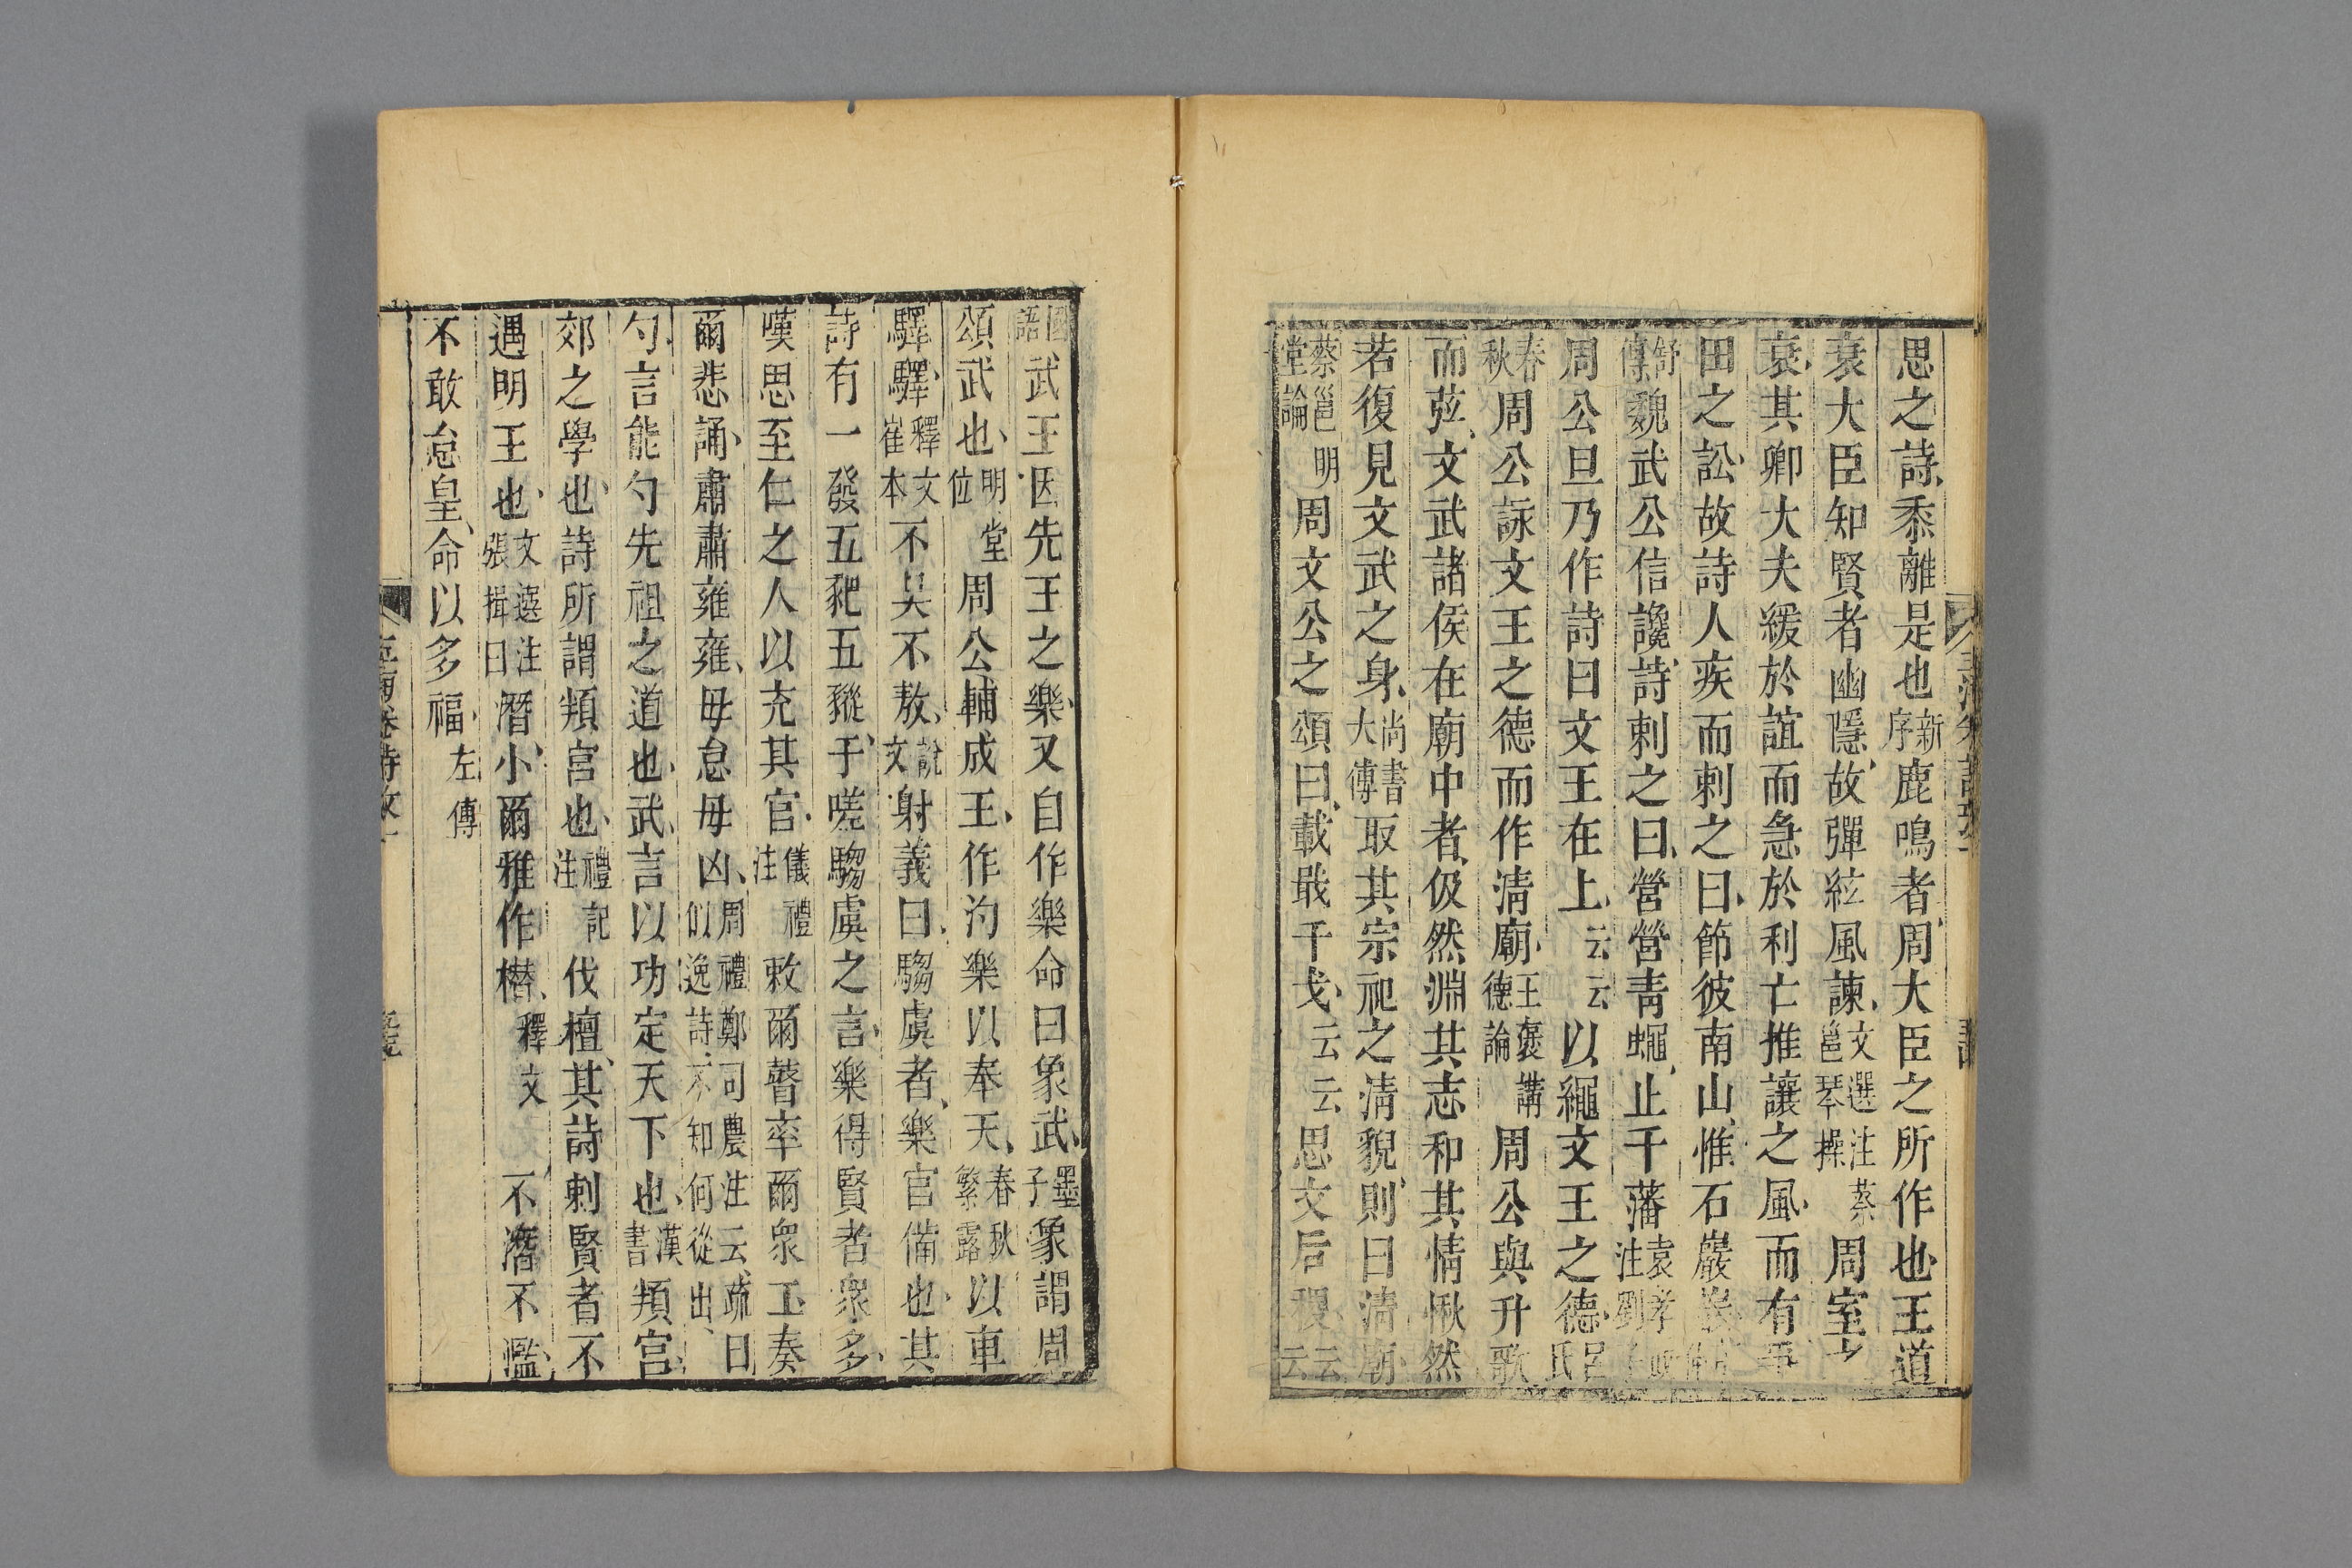 思之詩、黍離是也新序鹿鳴者、周大臣之所作也王道
衰大臣知賢者幽隱、故彈絃風諫、文選注蔡邕琴操周室之
衰、其卿大夫緩於誼而急於利亡推讓之風、而有爭
田之訟、故詩人疾而刺之曰、節彼南山、惟石巖巖
舒傳魏武公信讒、詩刺之曰、營營青蠅、止于藩袁孝政注劉子
周公旦乃作詩曰文王在上、云云以繩文王之德、呂氏
春秋周公詠文王之德而作清廟、王褒講德論周公與升歌
而弦、文武諸侯在廟中者、伋然淵其志和其情愀然
若復見文武之身、尚書大傳取其宗祀之清貌、則曰清廟
蔡邕明堂論周文公之頌曰、載戢干戈、云云思文后稷、云云
國語武王因先王之樂、又自作樂命曰象武、墨子象謂周
頌武也、明堂位周公輔成王、作汋樂以奉天、春秋繁露以車
驛驛、釋文崔本不吳不敖、說文射義曰、騶虞者、樂官備也、其
詩有一發五豝五豵、于嗟騶虞之言、樂得賢者衆多、
嘆思至仁之人以充其官、儀禮注敕爾瞽率爾衆工奏
爾悲誦、肅肅雍雍、毋怠毋凶、周禮鄭司農注云、疏曰似逸詩、不知何從出、
勺、言能勺先祖之道也、武、言以功定天下也、漢書頖宮、
郊之學也、詩所謂頖宮也、禮記注伐檀、其詩刺賢者不
遇明王也、文選注張揖曰潛小、爾雅作橬、釋文不濳不濫、
不敢怠皇、命以多福、左傳